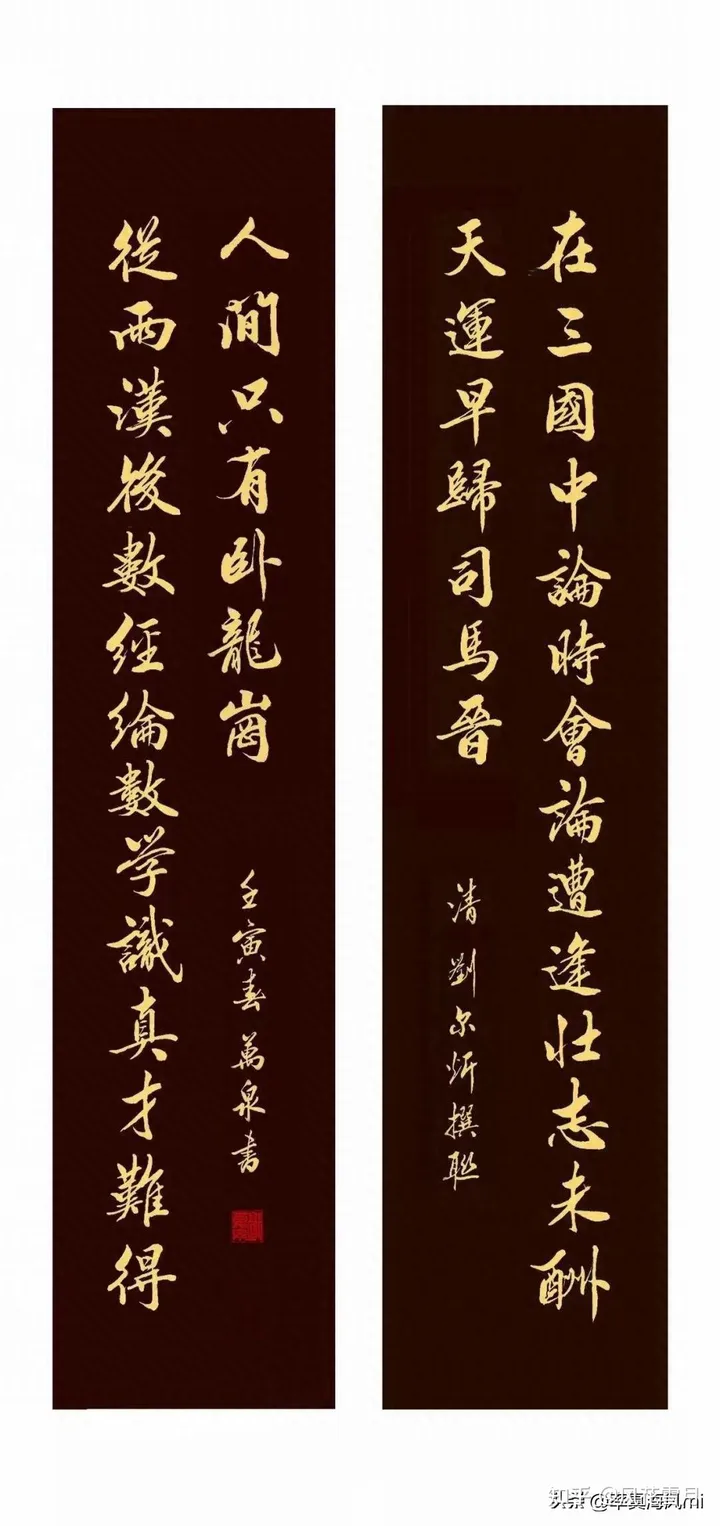 在三國中論時會論遭逢壯志未酬
天運早歸司馬晉
清劉尔炘撰聯
從兩漢後數經綸數学識真才難得
人間只有卧龍崗
壬寅春萬泉書
头条 @率真海风mi